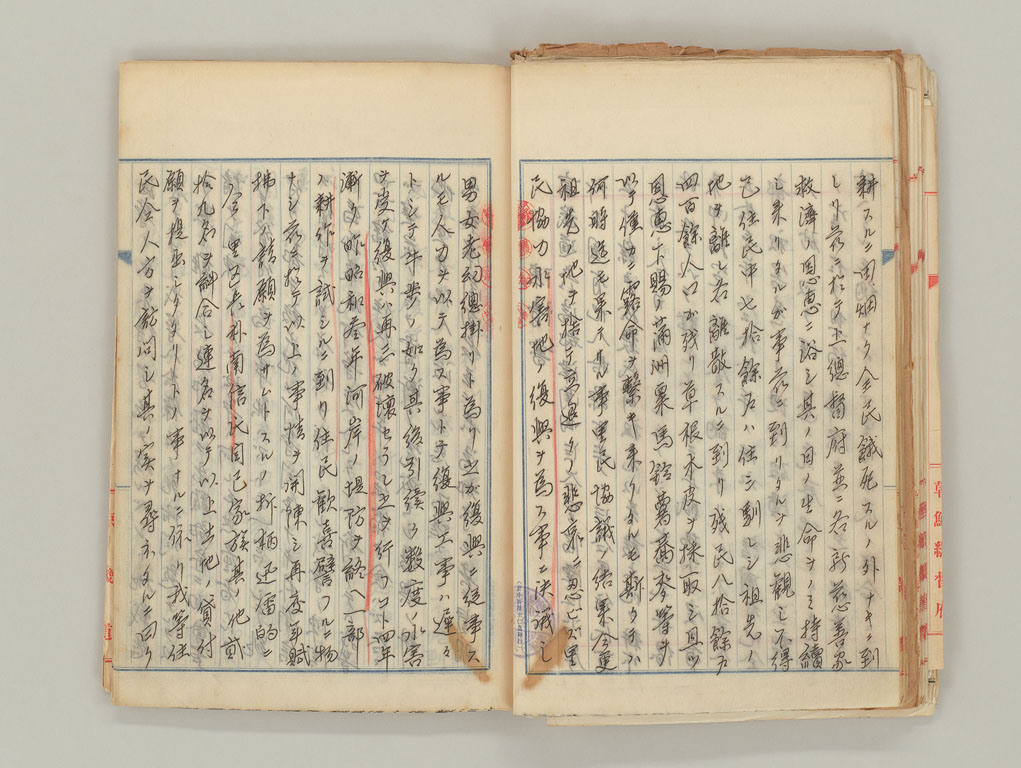 耕スルニ田畑ナク全民餓死スルノ外ナキニ到
レリ茲ニ於テ上總督府並ニ各新慈善家
救濟ノ恩恵ニ浴シ其ノ日ノ生命ヲノミ持續
シ来リタルガ事茲ニ到リタルヲ悲観シ不得
已住民中七拾餘戸ハ住ミ馴レシ祖先ノ
地ヲ離レ各離散スルニ到リ残民八拾餘戸
四百餘人口ガ残リ草根木皮ヲ採取シ且ツ
恩恵下賜ノ満洲粟馬鈴薯蕎麥等ヲ
以テ僅カニ露命ヲ繋キ来リタルモ斯クテハ
何時迄モ果テサル事里民協議ノ結果今更
祖先ノ地ヲ捨テ去ル過タノ悲哀ニ忍ビズ里
民協力水害地ノ復興ヲ為ス事ニ決議シ
男女老幼總掛リトト為リ之ガ復興ニ従事ス
ルモ人力ヲ以テ為ス事トテ復興工事ハ遅々
トシテ牛歩ノ如ク其後引續ク數度ノ水害
ヲ受ケ復興ハ再三破壊セラレ之ヲ行フコト四年
漸ク昨昭和参年河岸ノ堤防ヲ終ヘ一部
ノ耕作ヲ試ミルニ到リ住民歓喜譬フルニ物
ナシ茲ニ於テ以上ノ事情ヲ開陳シ再度年賦
拂下ノ請願ヲ為サムトスルノ折柄迅雷的ニ
今 里區長朴南信氏自己家族其ノ他貳
拾九名ヲ糾合シ連名ヲ以テ以上土地ノ貸付
願ヲ提出シタタリトノ事ナルニ依リ我等住
民全人方ヲ訪問シ其ノ実ヲ尋ネタルニ曰ク
朝鮮總督府